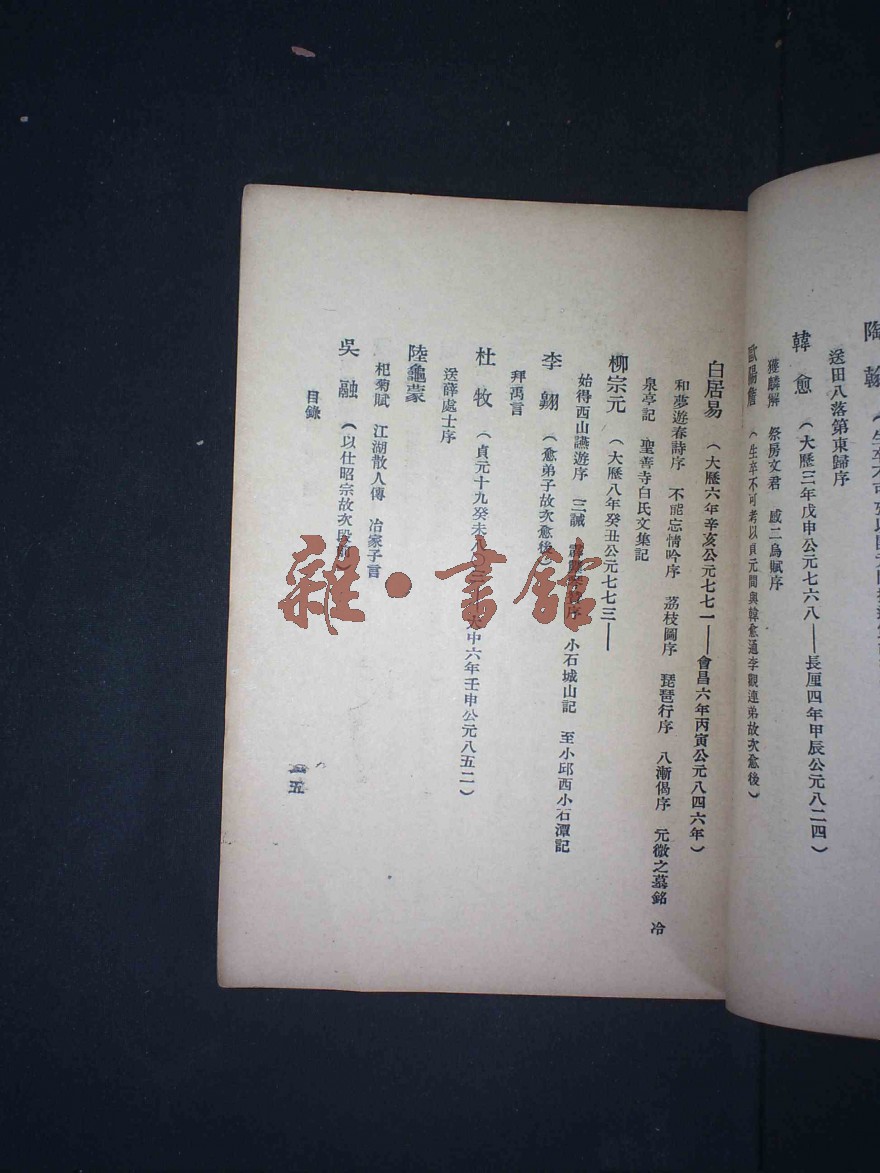 陶翰
送田八落第東歸序
韓愈 （大歷三年戊申公元七六八——長厘四年甲辰公元八二四）
獲麟解 祭房文君 感二鳥賦序
歐陽詹 （生卒不可考以貞元間與韓愈通李觀連弟故次愈後）
白居易 （大歷六年辛亥公元七七一——會昌六年丙寅公元八四六年）
和夢遊春詩序 不能忘情吟序 荔枝圖序 琵琶行序 八漸偈序 元微之墓銘 冷
泉亭記 聖善寺白氏文集記
柳宗元 （大歷八年癸丑公元七七三——
始得西山讌遊序 三誡 序 小石城山記 至小邱西小石潭記
李翺 （愈弟子故次愈後）
拜禹言
杜牧 （貞元十九癸未八〇三 大中六年壬申公元八五二）
送薛處士序
陸龜蒙
杞菊賦 江湖散人傳 冶家子言
吳融 （以仕昭宗故次段前）
目錄
五
雜·書館